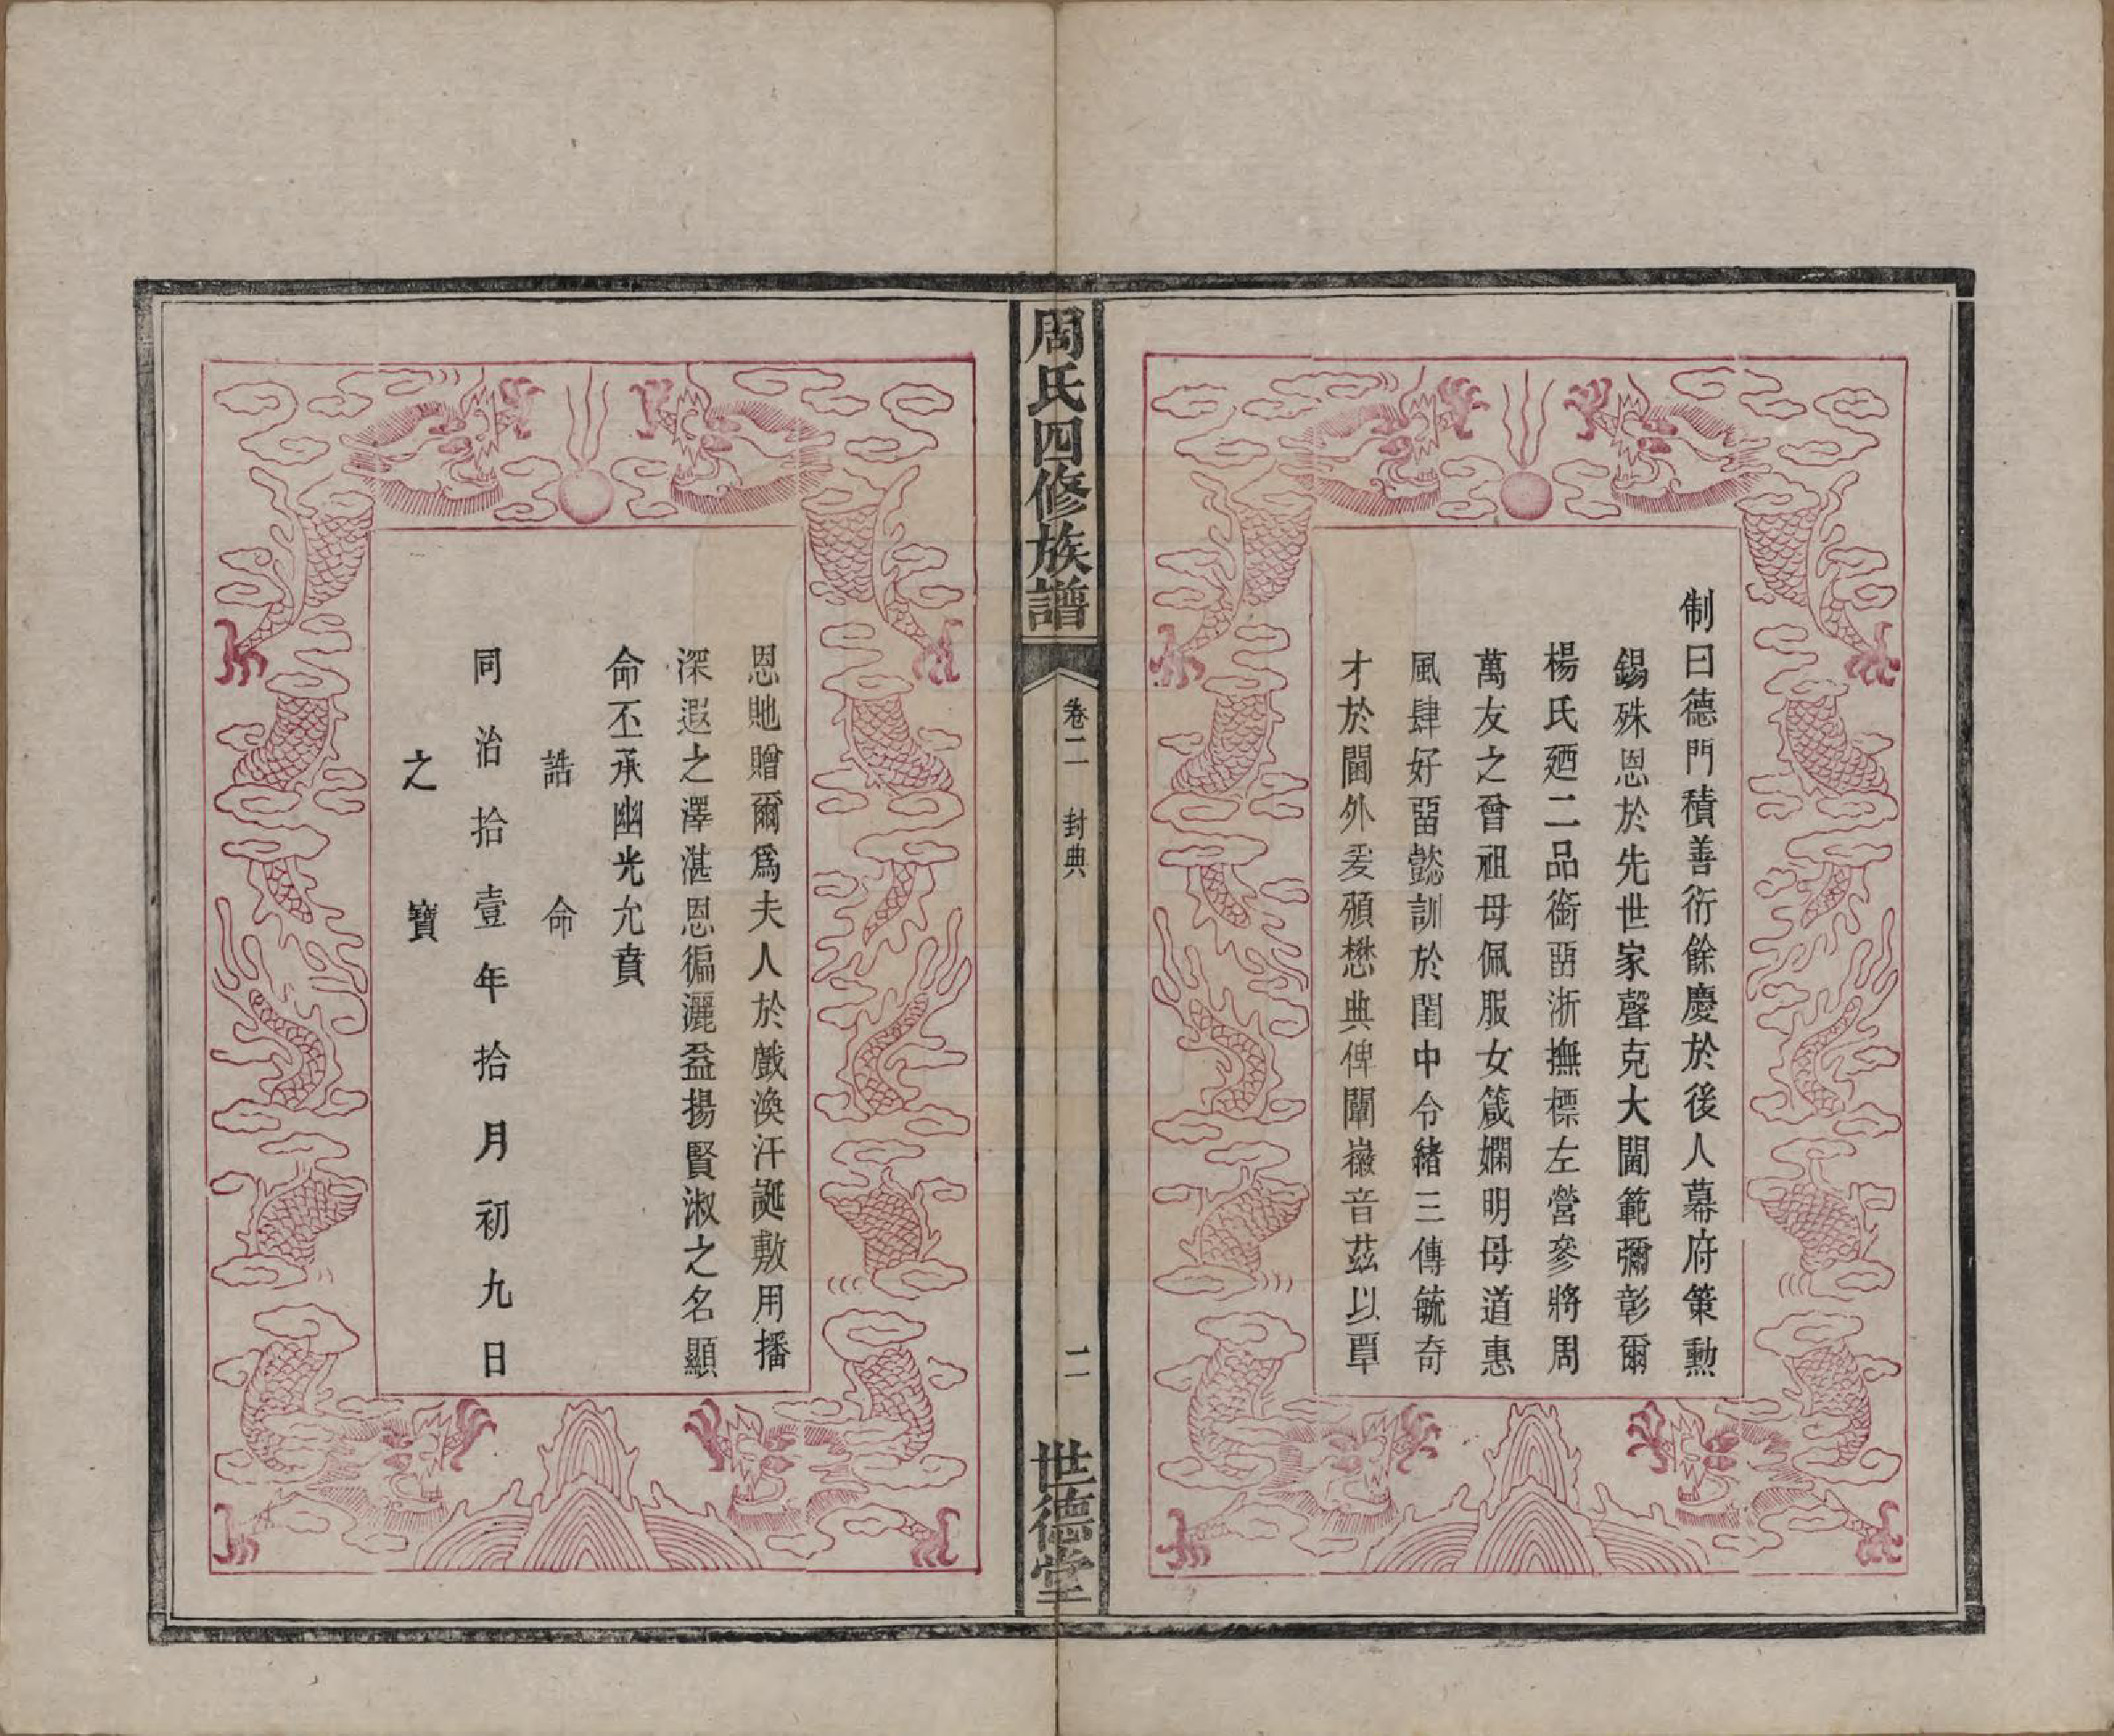 制曰德門積善衍餘慶於後人幕府策勲
錫殊恩於先世家聲克大閫範彌彰爾
楊氏廼二品銜畱浙撫標左營參將周
萬友之曾祖母佩服女箴嫻明母道惠
風肆好畱懿訓於閨中令緖三傳毓奇
才於閫外爰頒懋典俾闡徽音茲以覃
周氏四修族譜
卷二 封典
二
世德堂
恩貤贈爾爲夫人於戲渙汗誕敷用播
深遐之澤湛恩徧灑益揚賢淑之名顯
命丕承幽光允賁
誥命
同治拾壹年拾月初九日
之寶